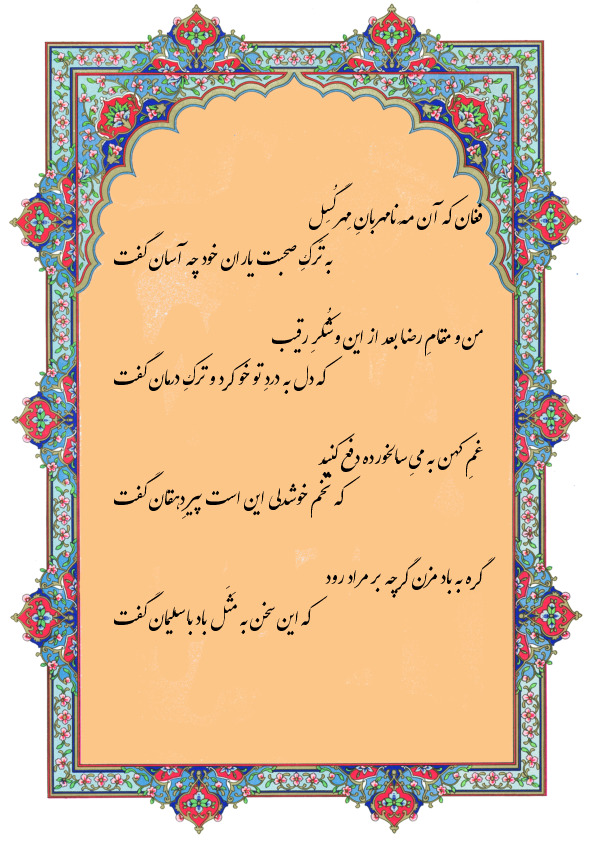 فغان که آن مه نامهربانِ مِهرگُسِل
به ترکِ صحبت یاران خود چه آسان گفت
من و مقامِ رضا بعد از این و شُکرِ رقیب
که دل به دردِ تو خو کرد و ترکِ درمان گفت
غمِ کهن به میِ سالخورده دفع کنید
که تخم خوشدلی این است پیرِ دهقان گفت
گره به باد مزن گرچه بر مراد رود
که این سخن به مَثَل باد با سلیمان گفت